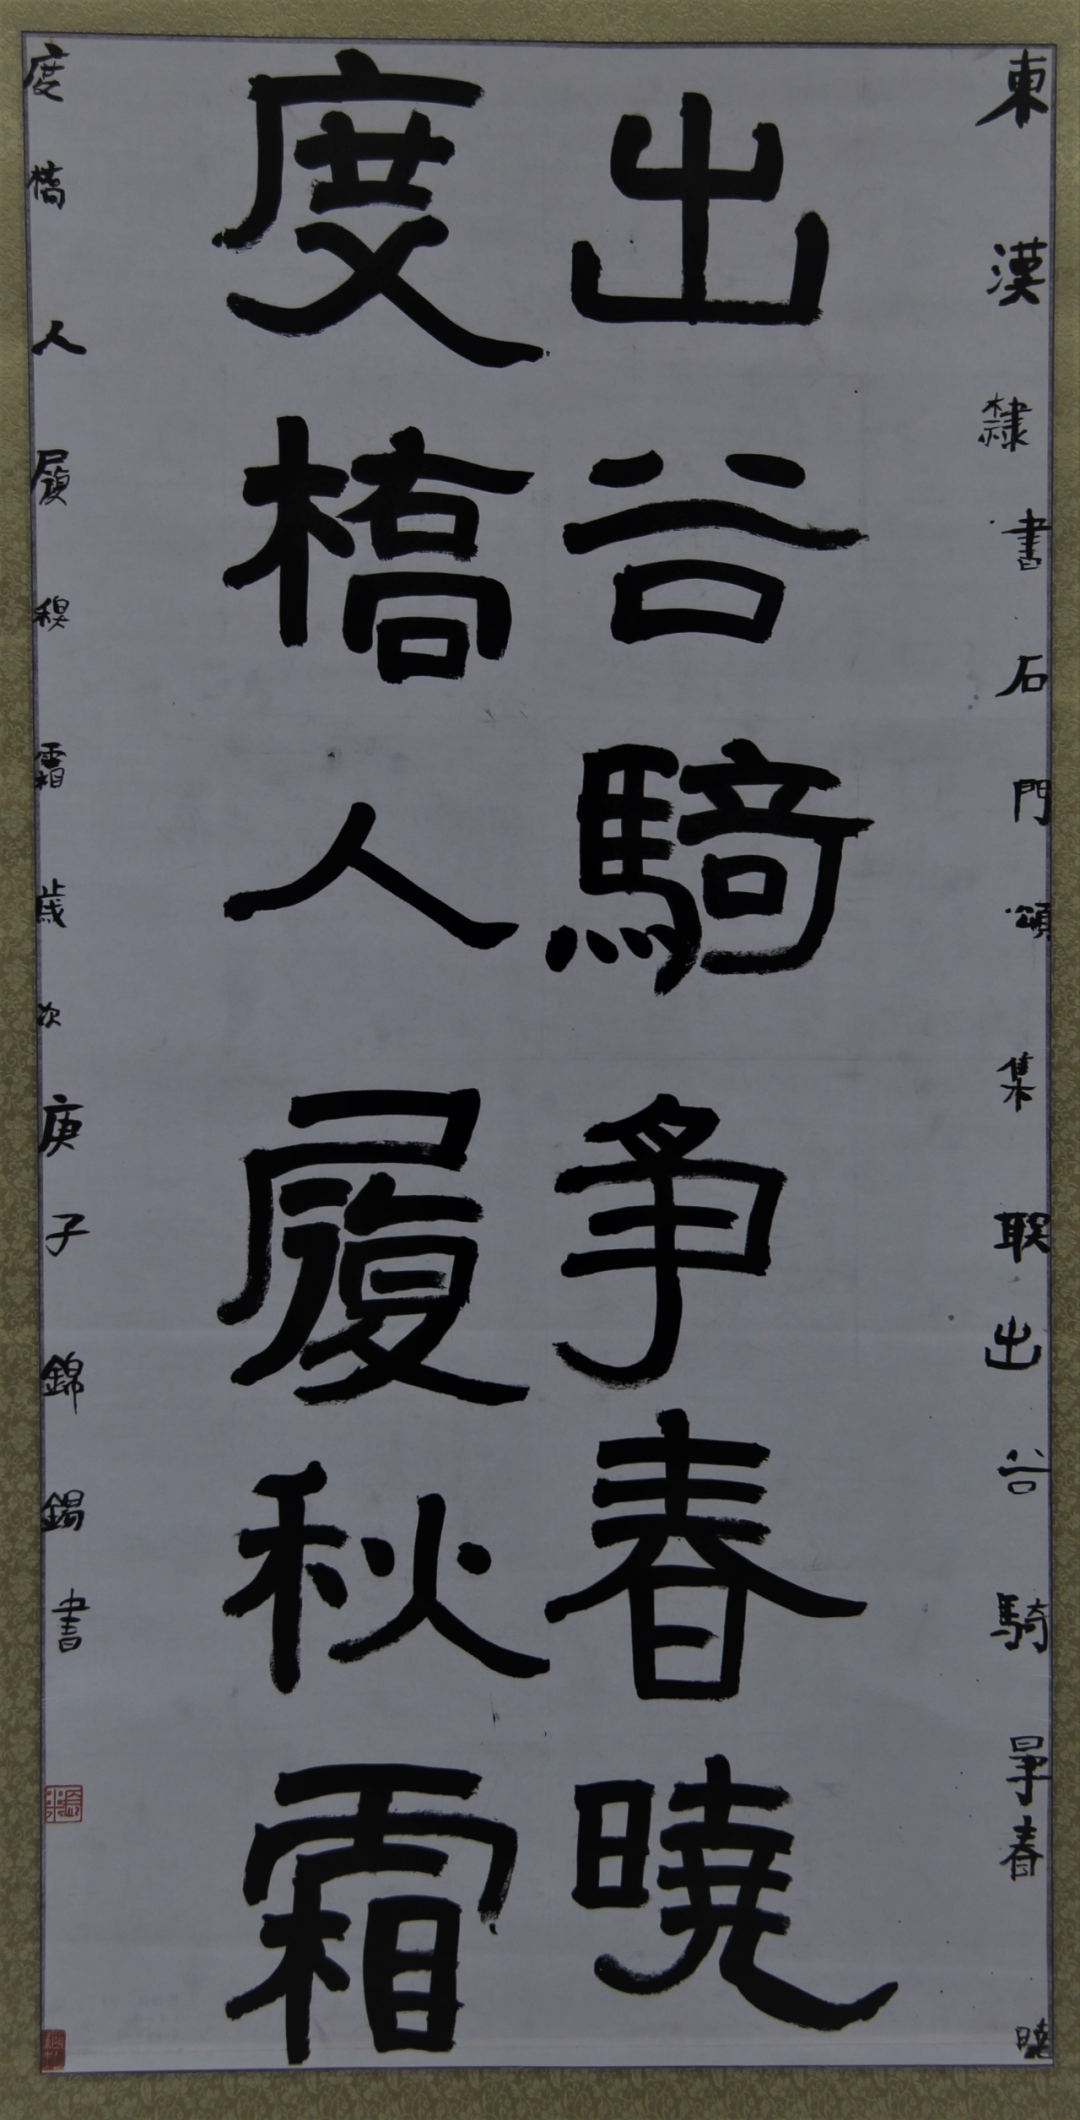 東漢隸書石門頌集联出谷騎爭春曉
出谷騎爭春曉
度橋人履秋霜
度橋人履秋霜歲次庚子錦錫書